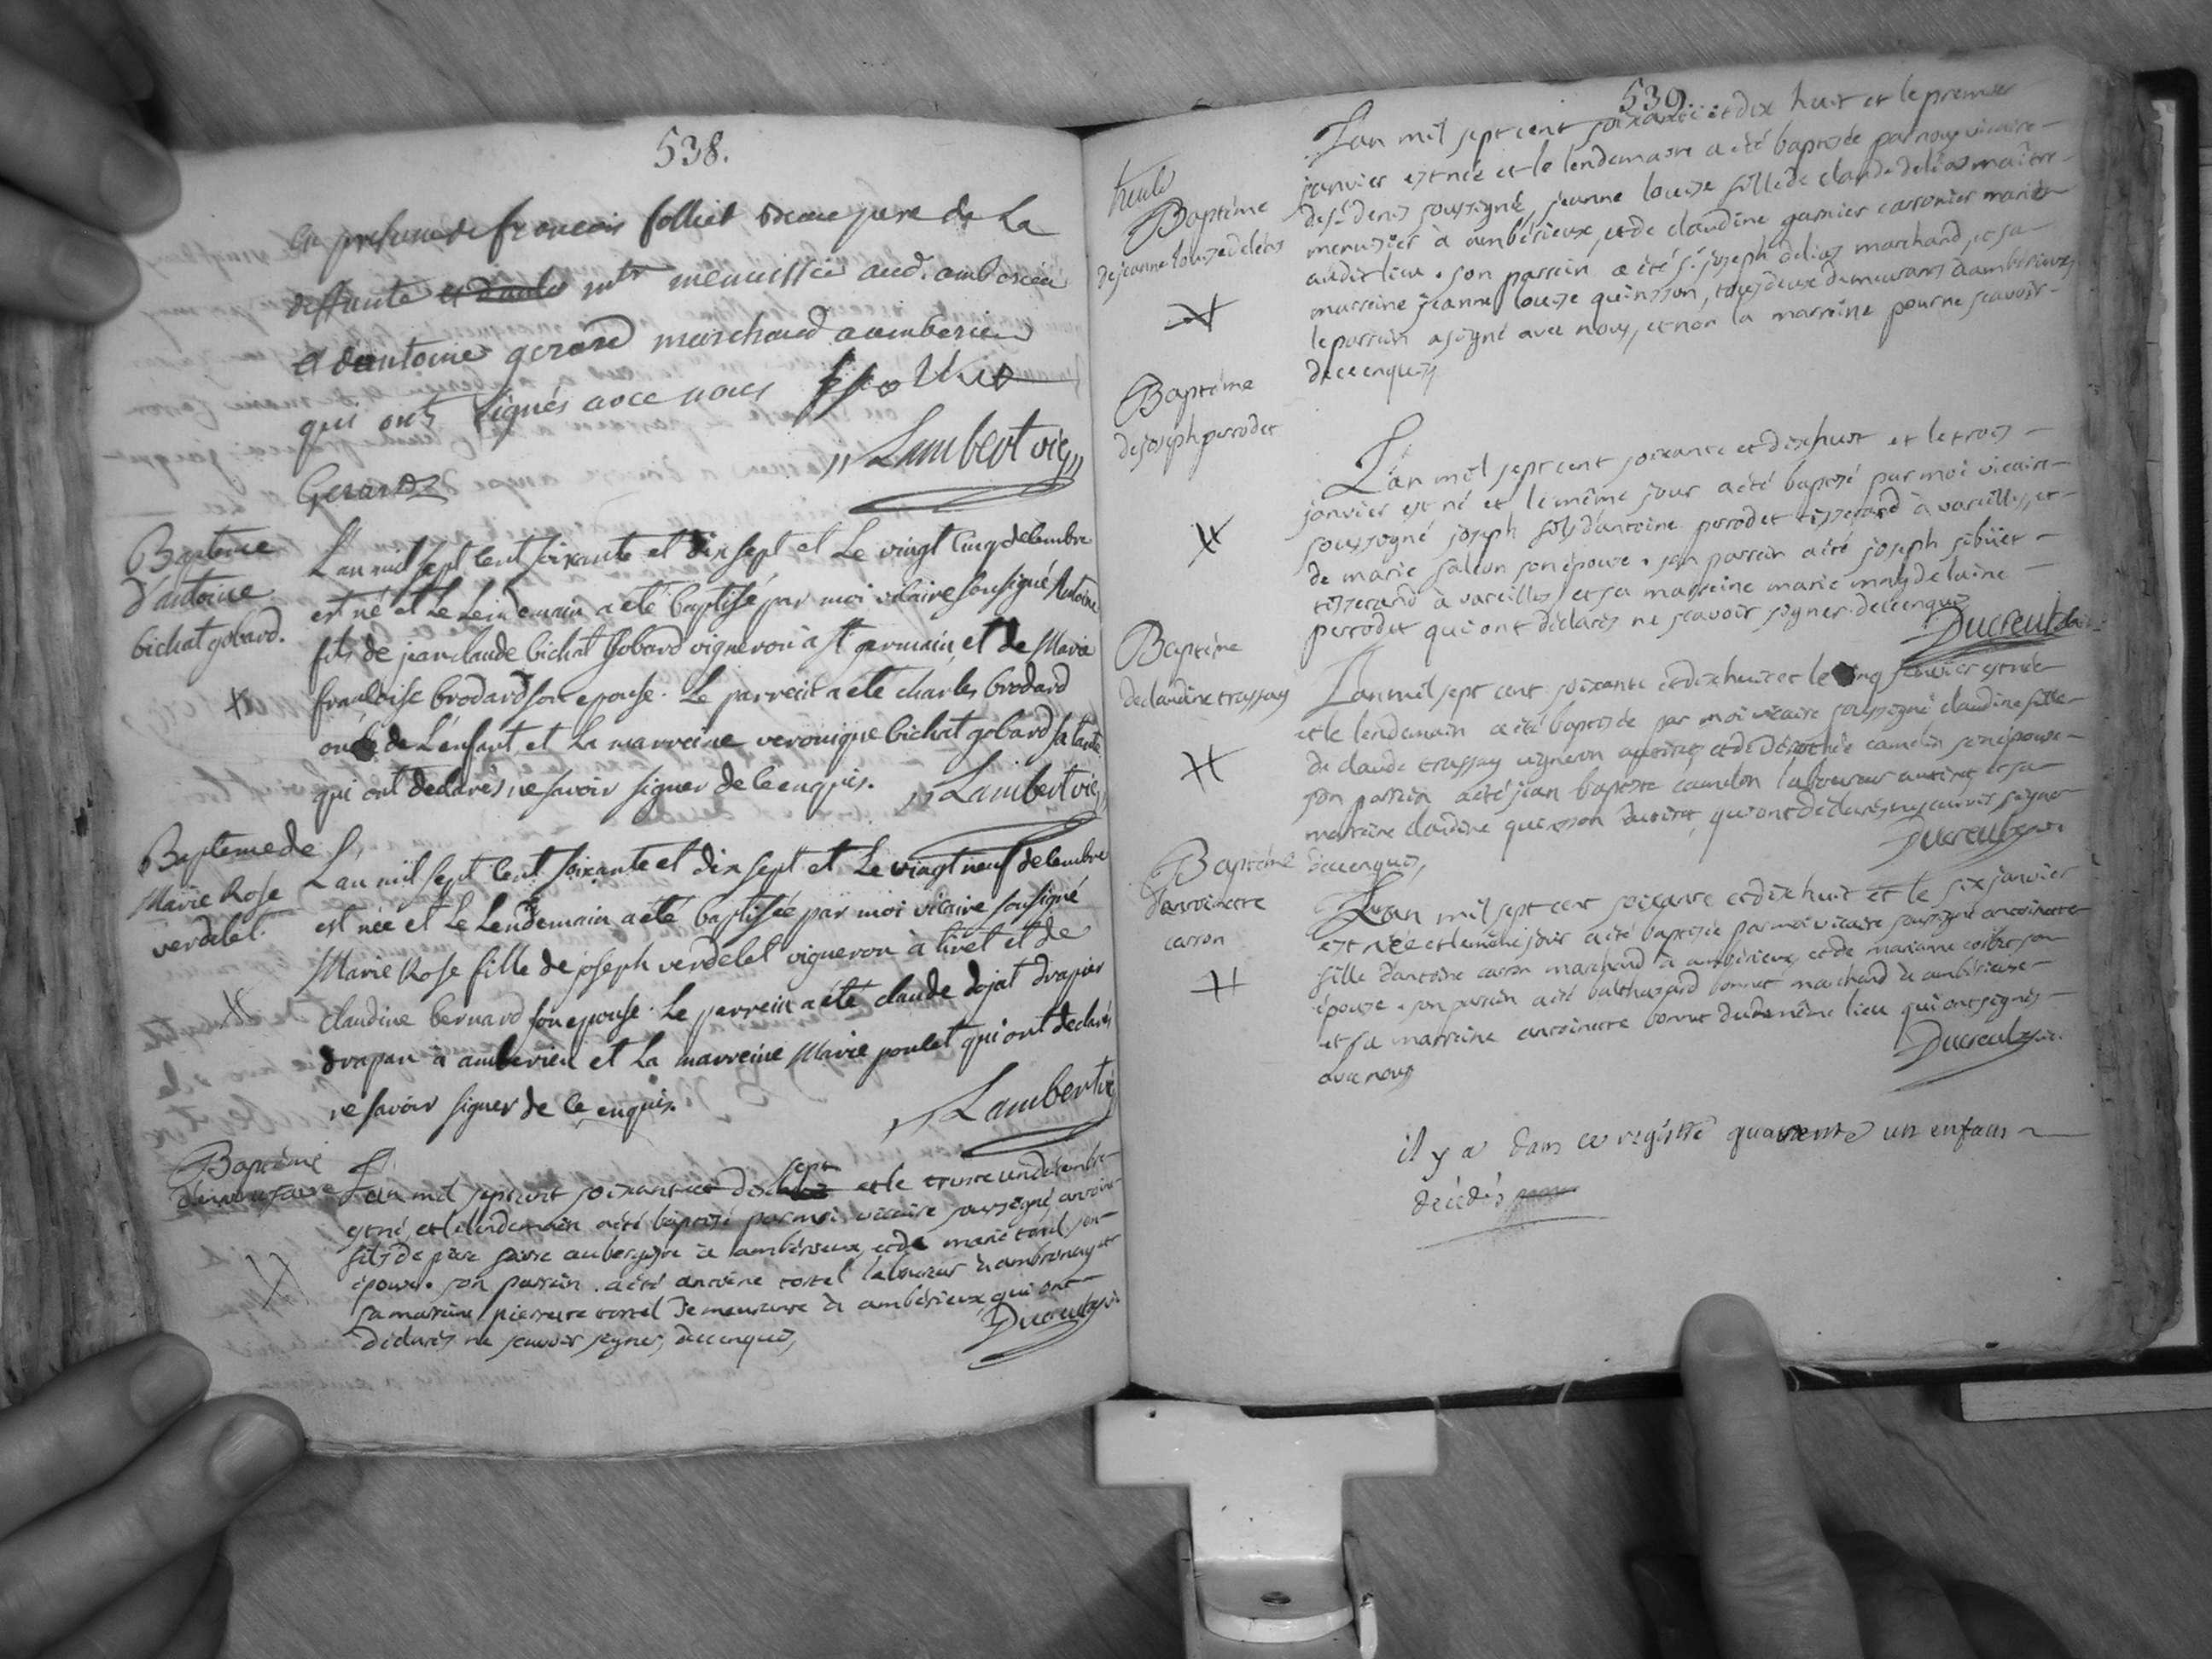 538.
en presence de francois folliet beaupere de la
deffunte et d'aule mtr menuissier aud. amberieu
et dantoine gerard marchand a amberieu
qui ont signés avec nous
Lambert vic
Gerard
Bapteme
d'antoine
bichat gobard.
L'an mil sept cent soixante et dix sept et Le vingt cinq decembre
est né et Le Lendemain a eté baptisé par moi vicaire sousigné Antoine
fils de jean claude bichat Gobard vigneron à st germain, et de Marie
francoise brodard son epouse. Le parrein a eté charles brodard
oncle de L'enfant, et La marreine veronique bichat gobard sa tante
qui ont declarés ne savoir signer de ce enquis. Lambert vic
Bapteme de
Marie Rose
verdelet.
L'an mil sept cent soixante et dix sept et Le vingt neuf decembre
est née et Le Lendemain a eté baptisée par moi vicaire sousigné
Marie Rose fille de joseph verdelet vigneron à tiret et de
claudine bernard son epouse. Le parrein a eté claude dojat drapier
drapan à amberieu et La marreine Marie poulet qui ont declarés
ne savoir signer de ce enquis.
Lambert vic
Baptême
L'an mil sept cent soixante et dix sept et le trente un decembre
est né, et le lendemain a été baptisé par moi vicaire soussigné antoine
fils de piere faivre aubergiste à ambérieux, et de marie tortel son
épouse. son parrain a été antoine tortel laboureur à ambronay et
sa marraine pierrette tortel demeurante à ambérieux, qui ont
déclarés ne scavoir signer, de ce enquis,
Ducreult vic.
539.
Baptême
de jeanne louise deléas
L'an mil sept cent soixante et dix huit et le premier
janvier est née et le lendemain a été baptisée par nous vicaire
de st denis soussigné, jeanne louise fille de claude deléas maître
menuisier à ambérieux, et de claudine garnier carronier mariés
audit lieu. son parrain a été sr joseph deléas marchand, et sa
marraine jeanne louise quinsson, tous deux demeurants à ambérieux,
le parrain a signé avec nous, et non la marraine pour ne scavoir
de ce enquis,
Baptême
de joseph perrodet
L'an mil sept cent soixante et dix huit et le trois
janvier est né et le même jour a été baptisé par moi vicaire
soussigné joseph fils d'antoine perrodet tisserand à vareilles, et
de marie saleon son épouse. son parrain a été joseph sibüet
tisserand à vareilles, et sa marraine marie magdelaine
perrodet qui ont déclarés ne scavoir signer de ce enquis,
Ducreult vic.
Baptême
de claudine trassay
L'an mil sept cent soixante et dix huit et le cinq janvier est née
et le lendemain a été baptisée par moi vicaire soussigné claudine fille
de claude trassay vigneron au tiret, et de dorothée camelin son épouse
son parrain a été jean baptiste camelin laboureur au tiret et sa
marraine claudine quinsson du tiret, qui ont déclarés ne scavoir signer
de ce enquis,
Ducreult vic.
Baptême
d'antoinette
carron
L'an mil sept cent soixante et dix huit et le six janvier
est née et le même jour a été baptisée par moi vicaire soussigné antoinette
fille d'antoine carron marchand à ambérieux, et de marianne son
épouse. son parrain a été balthazard bonnet marchand à ambérieux
et sa marraine antoinette bonnet du même lieu qui ont signés
avec nous
Ducreult vic.
il y a dans ce registre quarente un enfans
décédés